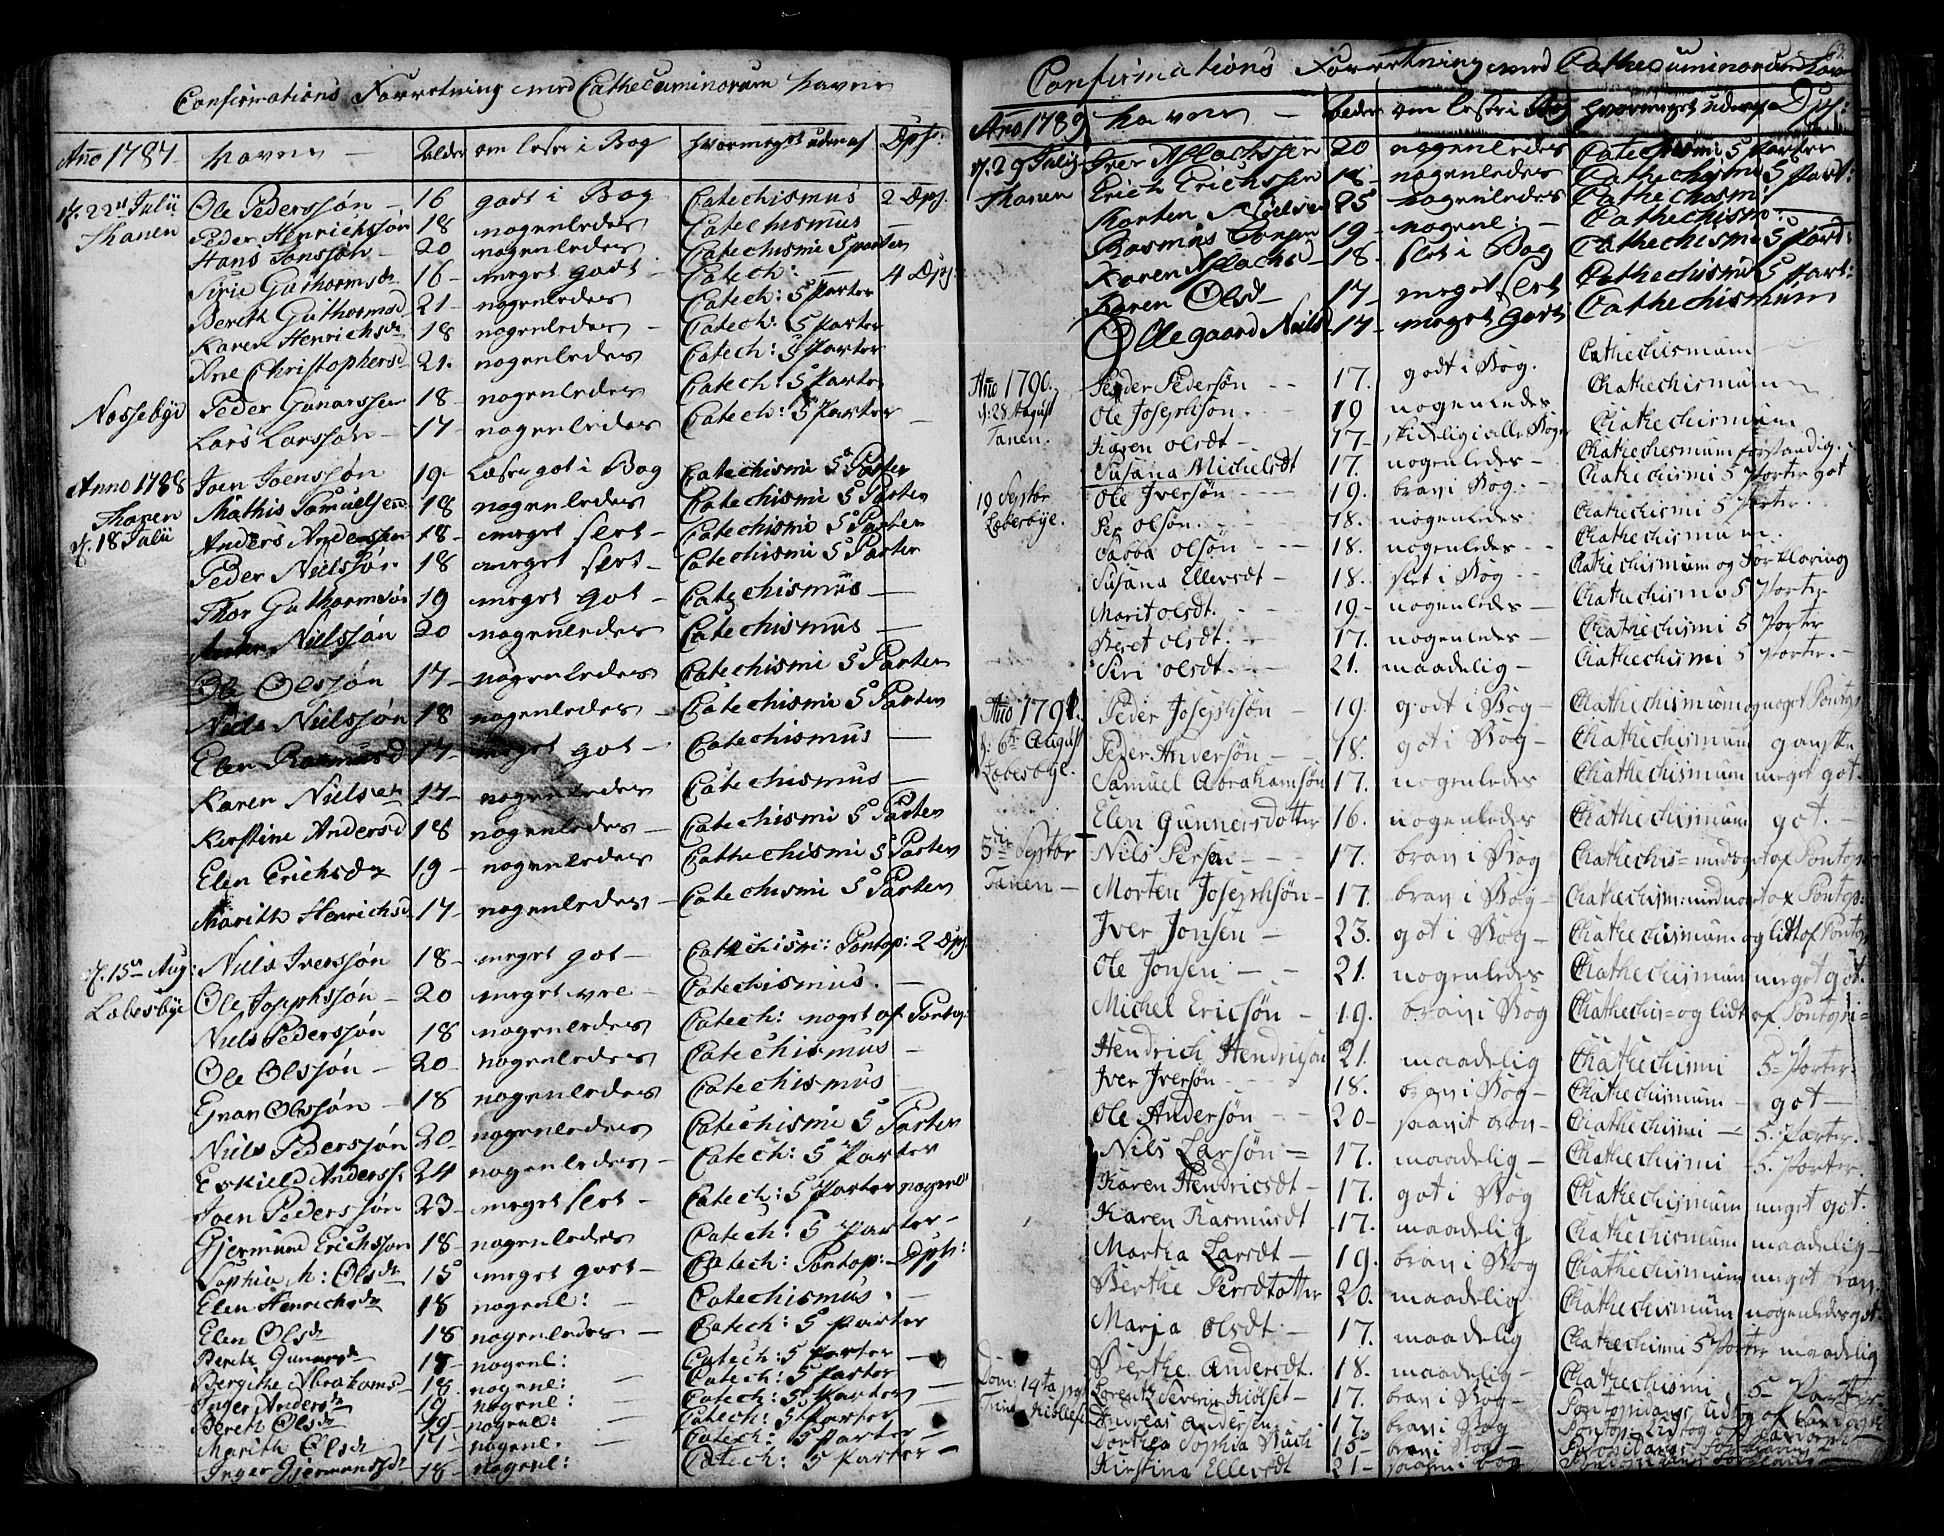 Confirmations Forretning med Cathecuminorum Navne
Año 1787 Navne Alder om læse i Bog hvormeget udenaf Dps:
d. 22 Julii Ole Pedersøn 16 godt i Bog Catechismus 2 Dps.
Thanen Peder Henrichsøn 18 nogenledes Catechismus
Hans Jonssøn 20 nogenledes Catechismi 5 parter
Siri Guthormsdr 16 meget godt Catech: 4 Dps.
Bereth Guthormsd 21 nogenledes Catech: 5 Parter
Karen Henrichsdr 18 nogenledes Catech: 5 Parter
Ane Christophersd 21. nogenledes Catech: 5 Parter
Nessebye Peder Gunarssen 18 nogenledes Catech: 5 Parter
Lars Larssøn 17 nogenledes Catech: 5 Parter
Anno 1788 Joen Joenssøn 19 Læser got i Bog Catechismi 5 Parter
Thanen Mathis Samuelsen 18 nogenledes Catechismi 5 Parter
d. 18 Julii Anders Anderssen 18 meget slet Catechismi 5 Parter
Peder Nielssøn 18 meget slet Catechismi 5 Parter
Thor Guthormsøn 19 meget got Catechismus
Nielssøn 20 nogenledes Catechismus
Ole Olssøn 17 nogenledes Catechismi 5 Parter
Niels Nielssøn 18 nogenledes Catechismi 5 Parter
Elen Rasmusd 17 meget got Catechismus
Karen Nielsen 17 nogenledes Catechismus
Kirstine Andersd 18 nogenledes Catechismi 5 Parter
Elen Erichsdr 19 nogenledes Cathechismi 5 Parter
Marith Henrichsd 17 nogenledes Catechismi 5 Parter
d. 15 Aug: Niels Iverssøn 18 meget got Catechism: Pontop: 2 Dps
Læbesbye Ole Josephssøn 20 meget vel Catechismus.
Niels Pederssøn 18 nogenledes Catech: noget af Pontop:
Ole Olssøn 20 nogenledes Catechismus
Olssøn 18 nogenledes Catechismus
Niels Pederssøn 20 nogenledes Catechismi 5 Parter
Eskield Anderss: 24 nogenledes Catech: 5 Parter
Joen Pederssøn 23 meget slet Catech: 5 Parter nogenl
Gjermund Erichssøn 18 nogenledes Catech: 5 Parter
Sophia M: Olsdr 15 meget godt Catech: Pontop: Dps:
Elen Henrichsdr 18 nogenl: Catechismus.
Elen Olsdr 18 nogenledes Catech: 5 Parter
Bereth Gunarsdr 18 nogenl: Catech: 5 Parter
Bergithe Abrahamsd 18 nogenl: Catech: 5 Parter
Inger Andersdr 19 nogenl: Catech: 5 Parter
Bereth Olsdr 19 nogenl: Catech: 5 Parter
Marith Olsdr 17 nogenl: Catech: 5 Parter
Inger Gjermundsdr 18 nogenl: Catech: 5 Parter
63.
Confirmations Forretning med Cathecuminorum Navne
Año 1789 Navne Alder om læse i Bog hvormeget udenaf Dps:
d. 29 Julij Iver Aslachssen 20 nogenledes Catechismi 5 Parter
Thanen Erich Erichssen 18 nogenledes Cathechismi 5 Part:
Morten Nielsen 25 nogenledes Cathechismi
Rasmus 19 nogenl: Cathechism:
Karen Aslachsd 18. slet i Bog Cathechismi 5 Part:
Karen Olsd 17 meget slet Cathechismi 5 Part:
Ollegaard Nielsd 17 meget godt Cathechismum
Año 1790. Peder Pedersøn 17. godt i Bog. Cathechismum
d: 28 August Ole Josephsøn. 19 nogenledes Chathechismum
Tanen. Karen Olsdt 17 skikelig i alle Bøger Chathechismum
Susana Michelsdt 17. nogenledes Chathechismum forstandig.
19 Septbr Ole Iversøn 19. brav i Bog. Chathechismi 5 Parter got
Læbesbye. Per Olsøn. 18. nogenledes Chathechismi 5 Parter.
Olsøn 18. nogenledes Chathechismum.
Susana Ellersdt 18. slet i Bog Cathechismum og Forklaring
Marit Olsdt. 19 nogenledes Chathechismo 5 Parter
Beret Olsdt. 17. nogenledes Chathechismi 5 Parter
Siri Olsdt. 21. maadelig Chathechismi 5 Parter.
Año 1791. Peder Josephsøn 19. godt i Bog Chathechismum og noget Pontop
d: 6te August Peder Andersøn 18. got i Bog Chathechismum ganske
Læbesbye. Samuel Abrahamsøn 17. nogenledes Chathechismum meget got.
Elen Gunnersdotter 16. nogenledes Chathechismum got.
5te Septbr Nils Persen 17. brav i Bog Chathechis= med noget af Pontop
Tanen Morten Josephsøn 17. brav i Bog Chathechism: med noget af Pontop:
Iver Jonsen 23. got i Bog Chathechismum og lidt af Pontop
Ole Jonsen 21. nogenledes Chathechismum meget got.
Michel Ericsøn 19. brav i Bog Chathechis= og lidt af Pontopi=
Hendrich Hendrigsøn 21. maadelig Chathechismi 5 Parter.
Iver Iversøn 18. brav i Bog Chathechismum got
Ole Andersøn 20 Chathechismi 5. Parter.
Nils Larsøn 17. maadelig Chathechismi 5. Parter.
Karen Hendricsdt 17. got i Bog Chathechismum meget got.
Karen Rasmusdt 17. maadelig Chathechismum maadelig
Martha Larsdt 19. brav i Bog Chathechismum meget brav
Berthe Persdotter 20. maadelig Chathechismum nogenledes got
Marja Olsdt. 17. maadelig Chathechismi 5 Parter maadelig
Berthe Andersdt. 18. maadelig Chathechismi 5 Parter
Dom: 14ta p Lorentz Severin 17. brav i Bog
Trin: Kiøllef: Andreas Andersen 17. brav i Bog
Dorthea Sophia Buch 15 brav i Bog
Kirstina Ellersdt 21 i Bog